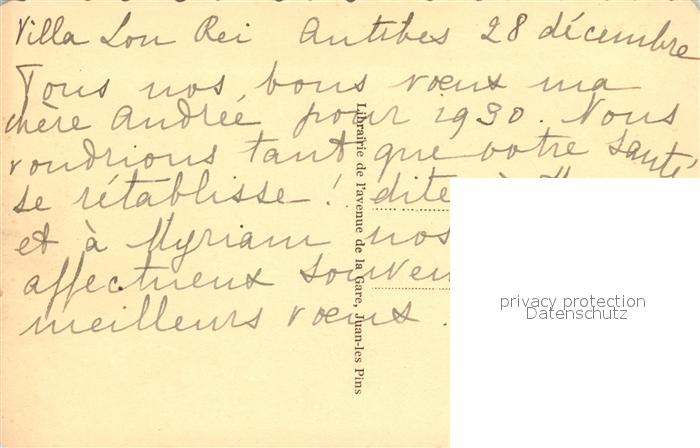 Villa Lou Rei Antibes 28 décembre
Tous nos bons vœux ma
chère Andrée pour 1930. Nous
voudrions tant que votre santé
se rétablisse ! dite à
et à Myriam nos
affectueux souven
meilleurs vœux.
Librairie de l'avenue de la Gare, Juan-les Pins
privacy protection
Datenschutz